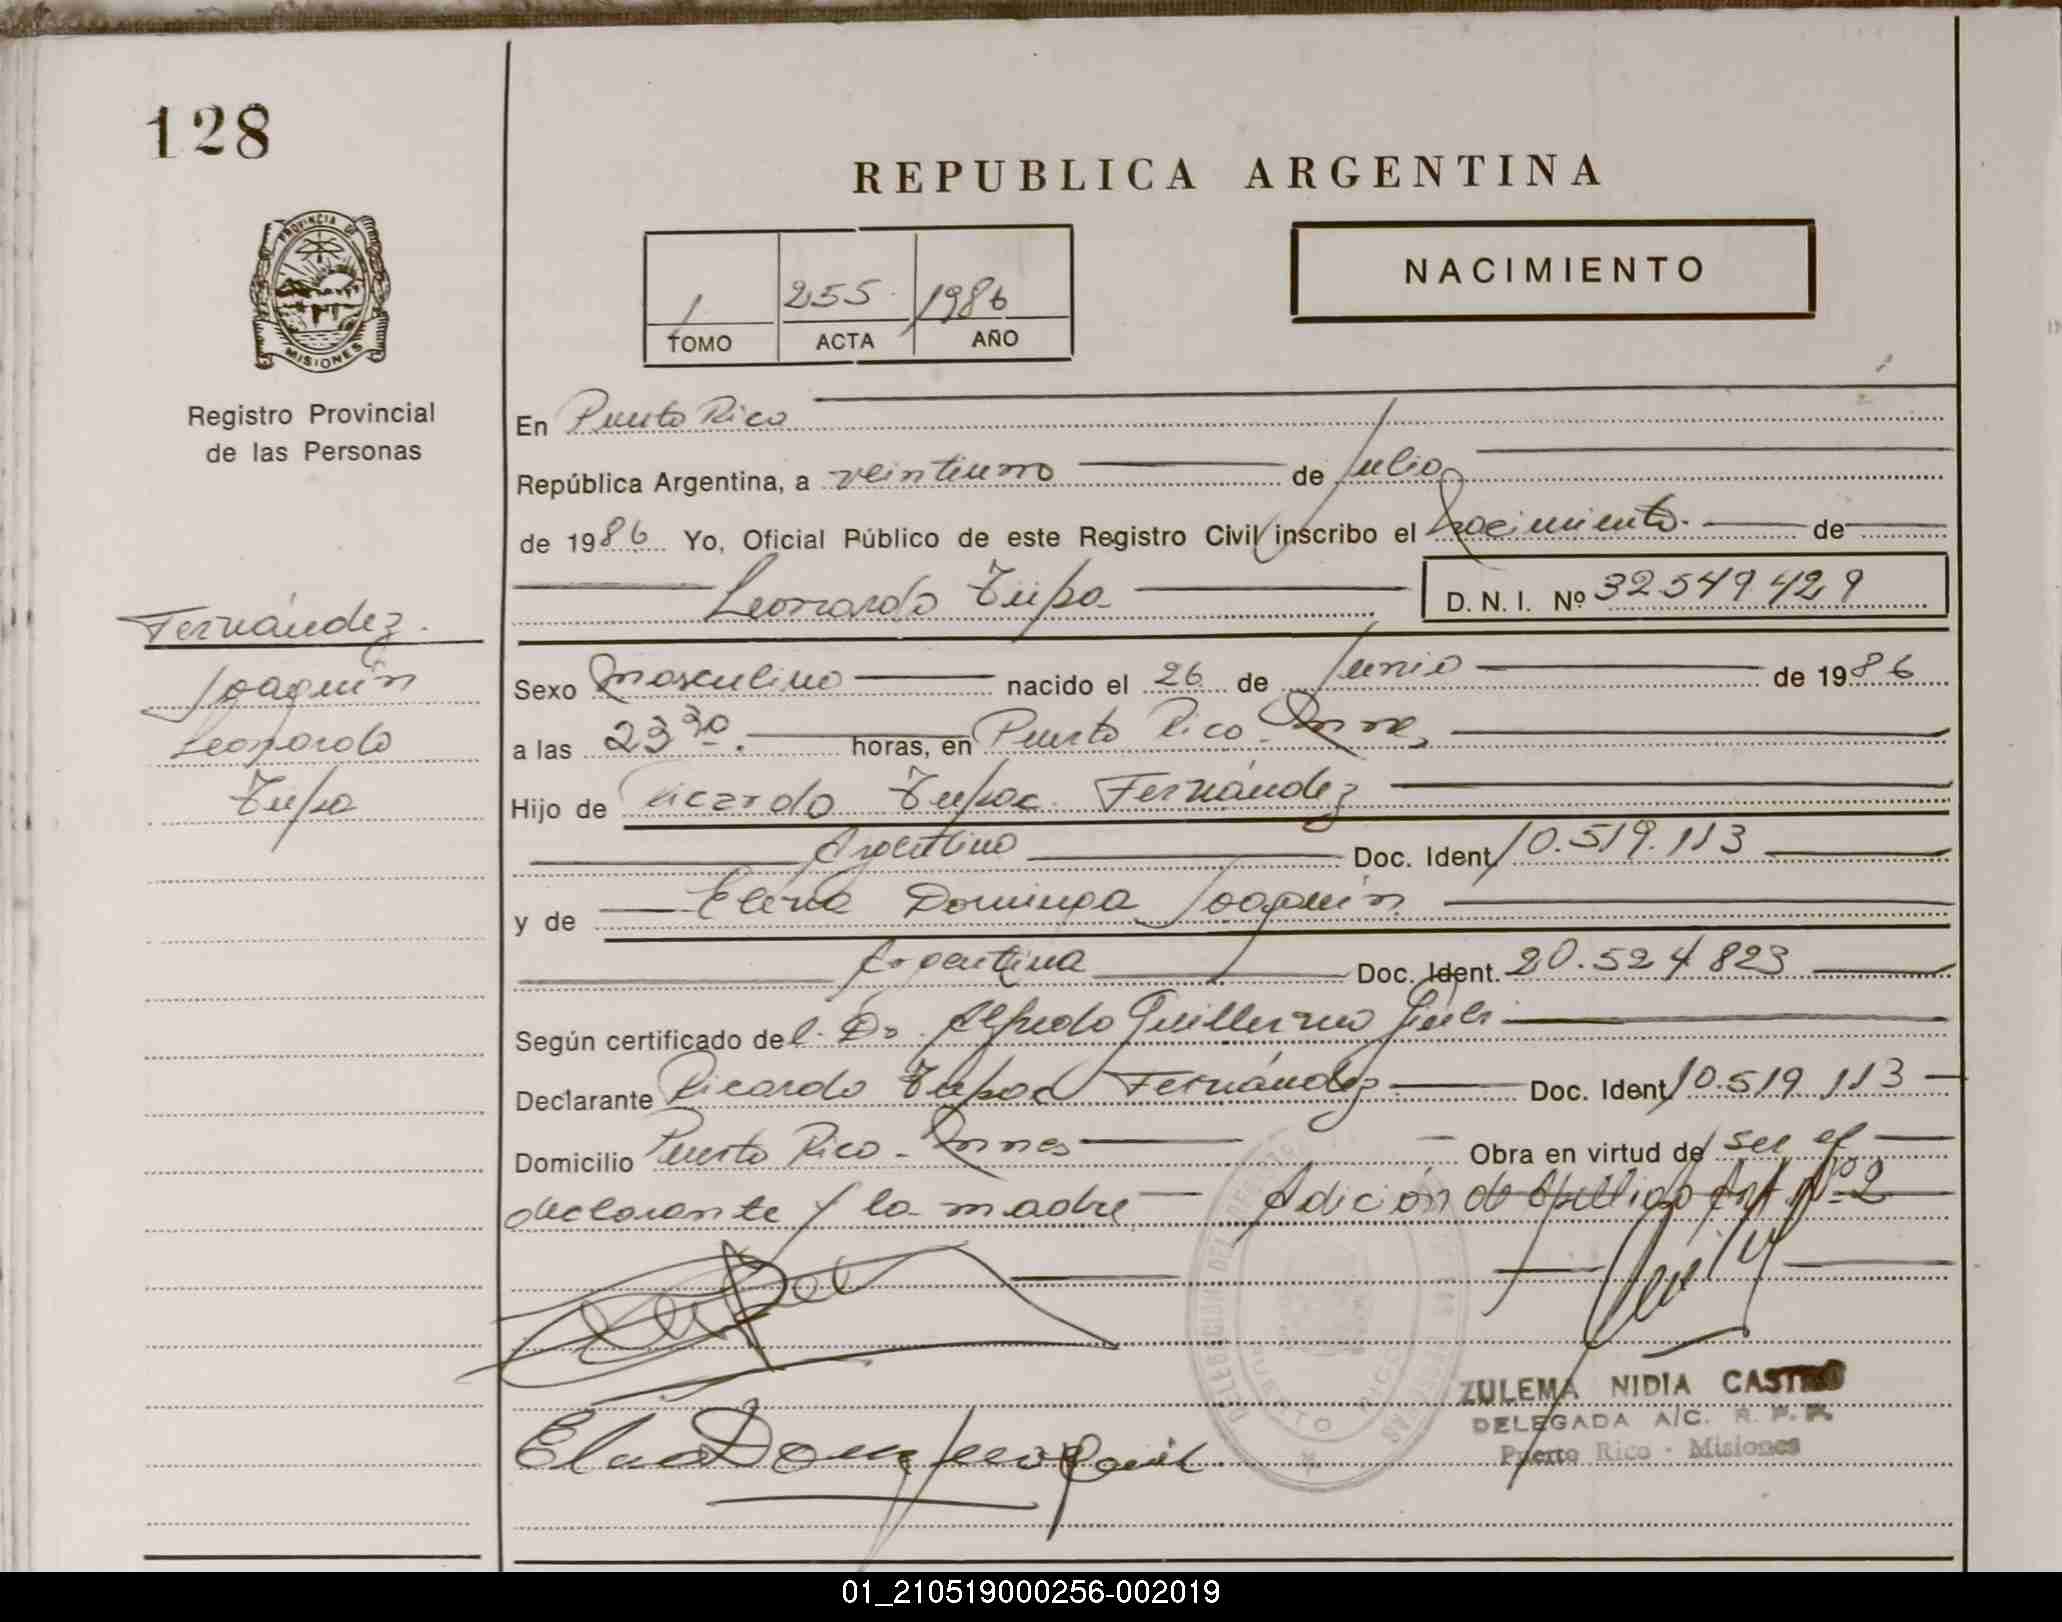 128
REPUBLICA ARGENTINA
PROVINCIA DE
MISIONES
Registro Provincial
de las Personas
1 255 1986
TOMO ACTA AÑO
NACIMIENTO
En Puerto Rico
República Argentina, a veintiuno de Julio
de 1986 Yo, Oficial Público de este Registro Civil inscribo el Nacimiento de
Leonardo Tupa D. N. I. Nº 32549429
Fernández
Joaquín
Leonardo
Tupa
Sexo Masculino nacido el 26 de Junio de 1986
a las 23 30 horas, en Puerto Rico - Mnes
Hijo de Ricardo Tupac Fernández
Argentino Doc. Ident. 10.519.113
y de Elena Dominga Joaquín
Argentina Doc. Ident. 20.524 823
Según certificado del Dr. Alfredo Guillermo
Declarante Ricardo Tupac Fernández Doc. Ident. 10.519.113
Domicilio Puerto Rico - Mnes Obra en virtud de ser el
declarante y la madre Adición de Apellido Art Nº 2
ZULEMA NIDIA CASTRO
DELEGADA A/C. R. P. P.
Puerto Rico - Misiones
01_210519000256-002019